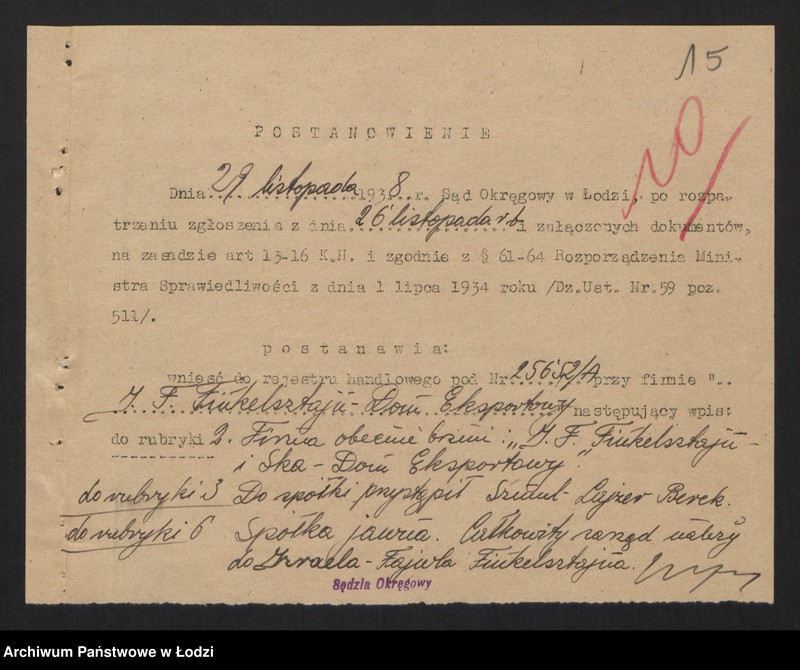 15
20/
POSTANOWIENIE
Dnia 29 listopada 1938 r. Sąd Okręgowy w Łodzi, po rozpa-
trzeniu zgłoszenia z dnia 26 listopada r.b. i załączonych dokumentów,
na zasadzie art 13-16 K.H. i zgodnie z § 61-64 Rozporządzenia Mini-
stra Sprawiedliwości z dnia 1 lipca 1934 roku /Dz.Ust. Nr.59 poz.
511/.
postanawia:
wnieść do rejestru handlowego pod Nr. 25652/A przy firmie "..
J. F. Finkelsztajn - Dom Eksportowy następujący wpis:
do rubryki 2. Firma obecnie brzmi: „J. F. Finkelsztajn -
i Ska - Dom Eksportowy".
do rubryki 3 Do spółki przystąpił Szmul-Lajzer Berek.
do rubryki 6 Spółka jawna. Całkowity zarząd należy
do Izraela-Fajwla Finkelsztajna.
Sędzia Okręgowy
Archiwum Państwowe w Łodzi